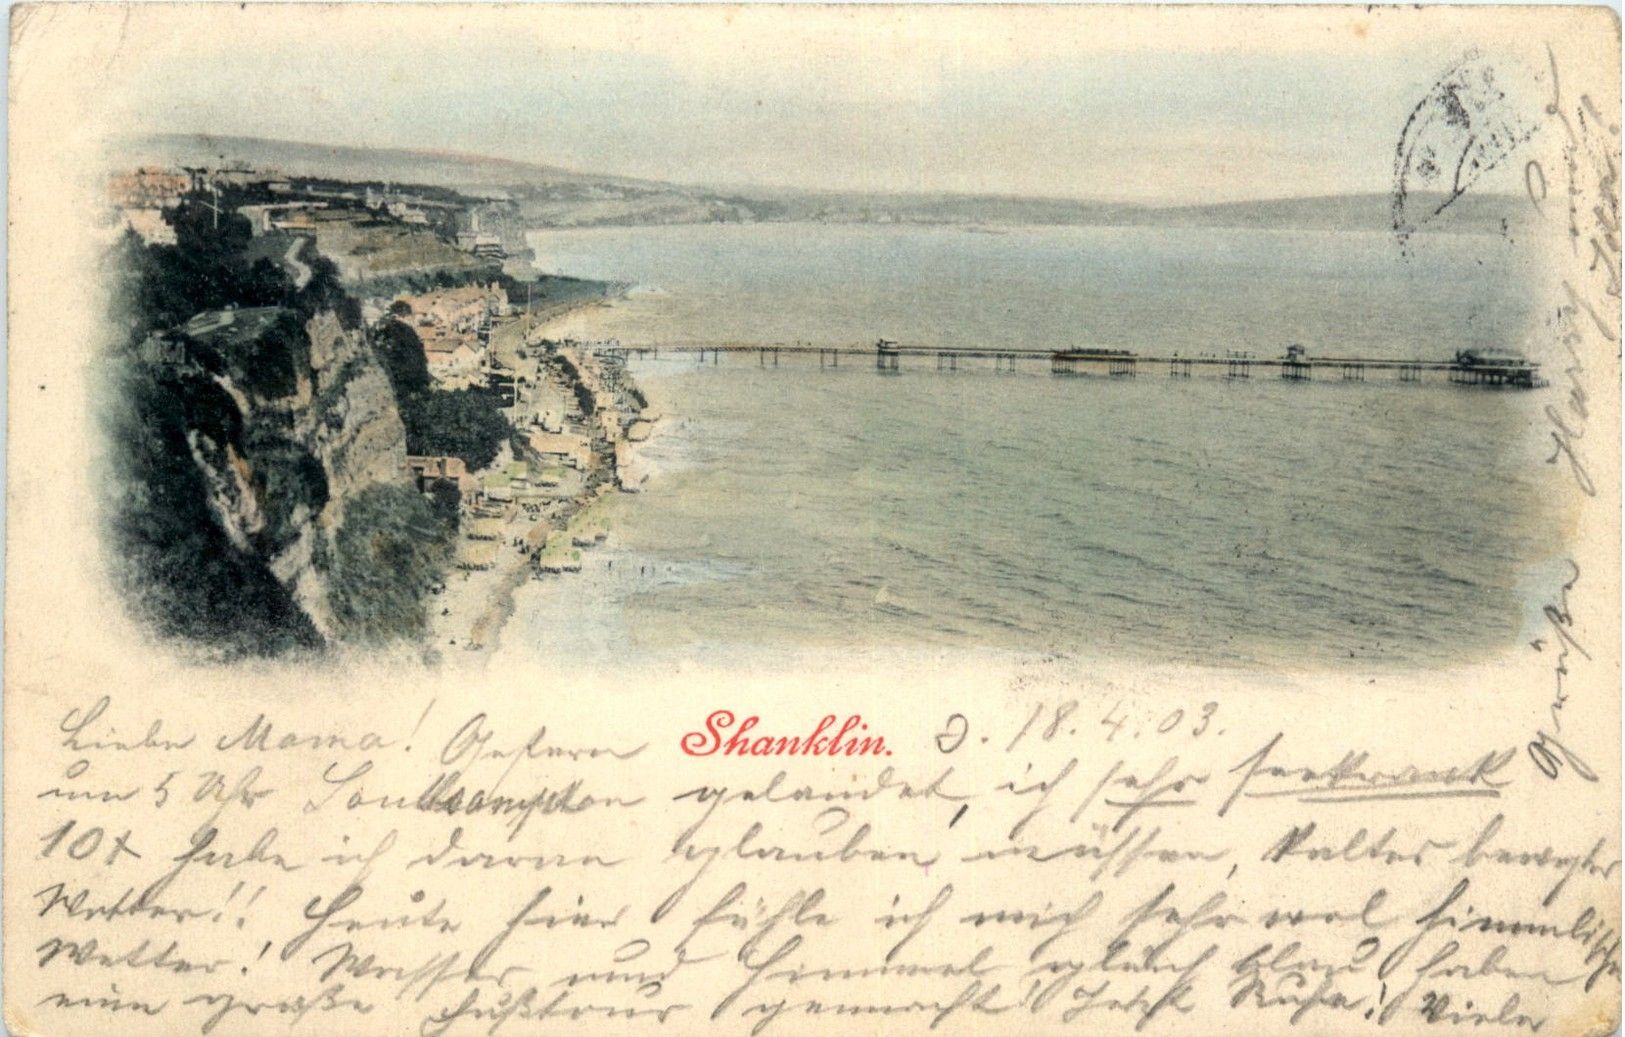 Liebe Mama! Gestern Shanklin. d. 18.4.03.
um 5 Uhr Southampton gelandet, ich sehr seekrank
10x habe ich daran glauben müssen, kaltes bewegtes
Wetter!! Heute hier fühle ich mich sehr wol himmlisches
Wetter! Wasser und Himmel gleich blau, haben
eine große Fußtour gemacht! Jetzt Ruhe! Viele
Grüße Harry und